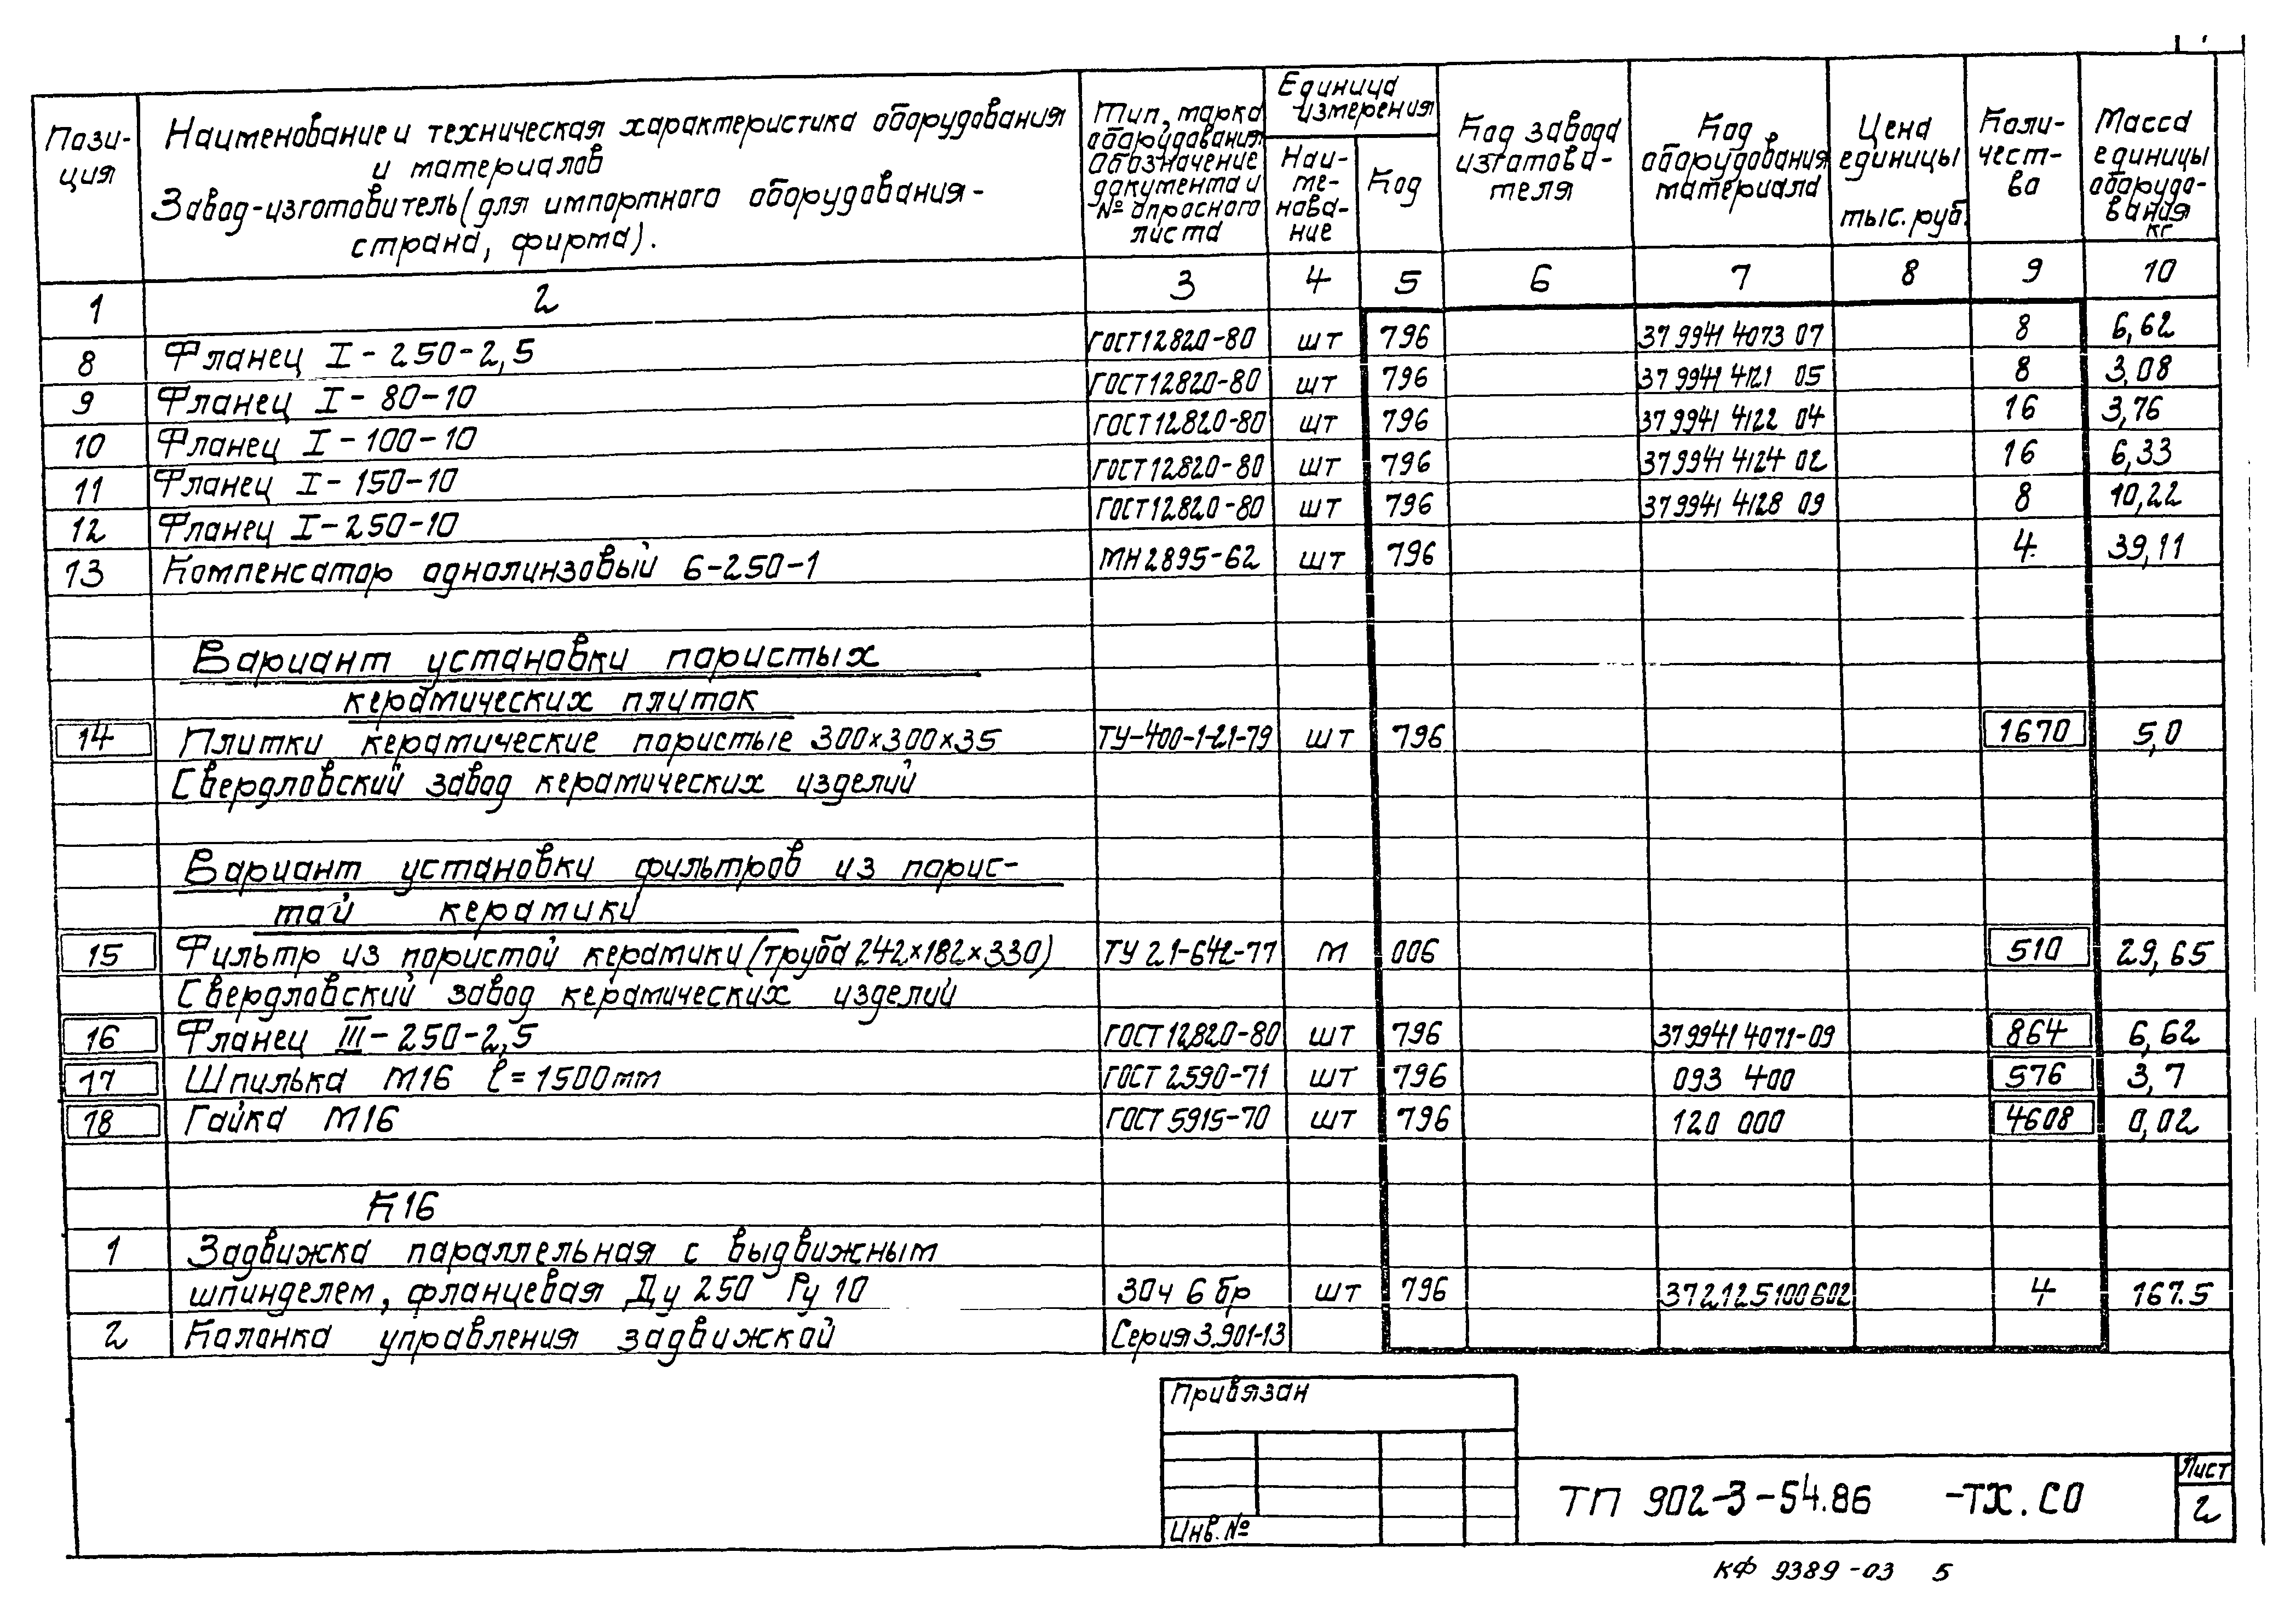 Пози-
ция
Наименование и техническая характеристика оборудования
и материалов
Завод-изготовитель (для импортного оборудования-
страна, фирма).
Тип, марка
оборудования.
Обозначение
документа и
№ опросного
листа
Единица
измерения
Наи-
ме-
нова-
ние
Код
Код завода
изготови-
теля
Код
оборудования
материала
Цена
единицы
тыс. руб.
Коли-
чест-
во
Масса
единицы
оборудо-
вания
кг
1 2 3 4 5 6 7 8 9 10
8 Фланец I-250-2,5 ГОСТ12820-80 шт 796 37 9941 4073 07 8 6,62
9 Фланец I-80-10 ГОСТ12820-80 шт 796 37 9941 4121 05 8 3,08
10 Фланец I-100-10 ГОСТ12820-80 шт 796 37 9941 4122 04 16 3,76
11 Фланец I-150-10 ГОСТ12820-80 шт 796 37 9941 4124 02 16 6,33
12 Фланец I-250-10 ГОСТ12820-80 шт 796 37 9941 4128 09 8 10,22
13 Компенсатор однолинзовый 6-250-1 МН2895-62 шт 796 4 39,11
Вариант установки пористых
керамических плиток
14 Плитки керамические пористые 300×300×35 ТУ-400-1-21-79 шт 796 1670 5,0
Свердловский завод керамических изделий
Вариант установки фильтров из порис-
той керамики
15 Фильтр из пористой керамики (труба 242×182×330) ТУ 21-642-77 м 006 510 29,65
Свердловский завод керамических изделий
16 Фланец III-250-2,5 ГОСТ12820-80 шт 796 37 9941 4071-09 864 6,62
17 Шпилька М16 ℓ=1500мм ГОСТ 2590-71 шт 796 093 400 576 3,7
18 Гайка М16 ГОСТ 5915-70 шт 796 120 000 4608 0,02
К16
1 Задвижка параллельная с выдвижным
шпинделем, фланцевая Ду 250 Ру 10 30ч 6 бр шт 796 372125100602 4 167.5
2 Колонка управления задвижкой Серия 3.901-13
Привязан
Инв. №
ТП 902-3-54.86 -ТХ.СО
Лист
2
КФ 9389-03 5